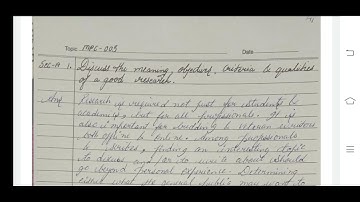 Topic MPC-005 Date
Sec-A 1. Discuss the meaning, objectives, criteria & qualities
of a good research.
Ans Research is required not just for students &
academics, but for all professionals. It is
also important for budding & veteran writers
both offline & online. Among professionals
& scribes, finding an interesting topic
to discuss and/or to write about should
go beyond personal experience. Determining
either what the general public may want to